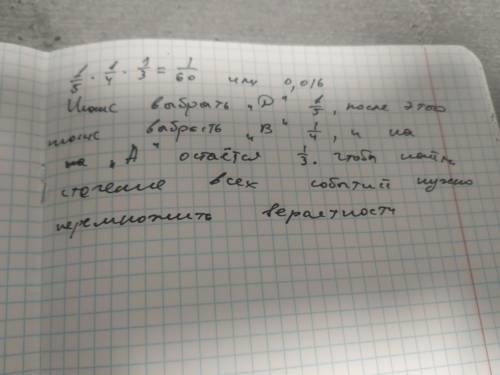 1/5 · 1/4 · 1/3 = 1/60 или 0,016
Шанс выбрать „Р“ 1/5, после этого
шанс выбрать „В“ 1/4, и на
на „А“ остаётся 1/3. чтобы найти
стечение всех событий нужно
перемножить верактности